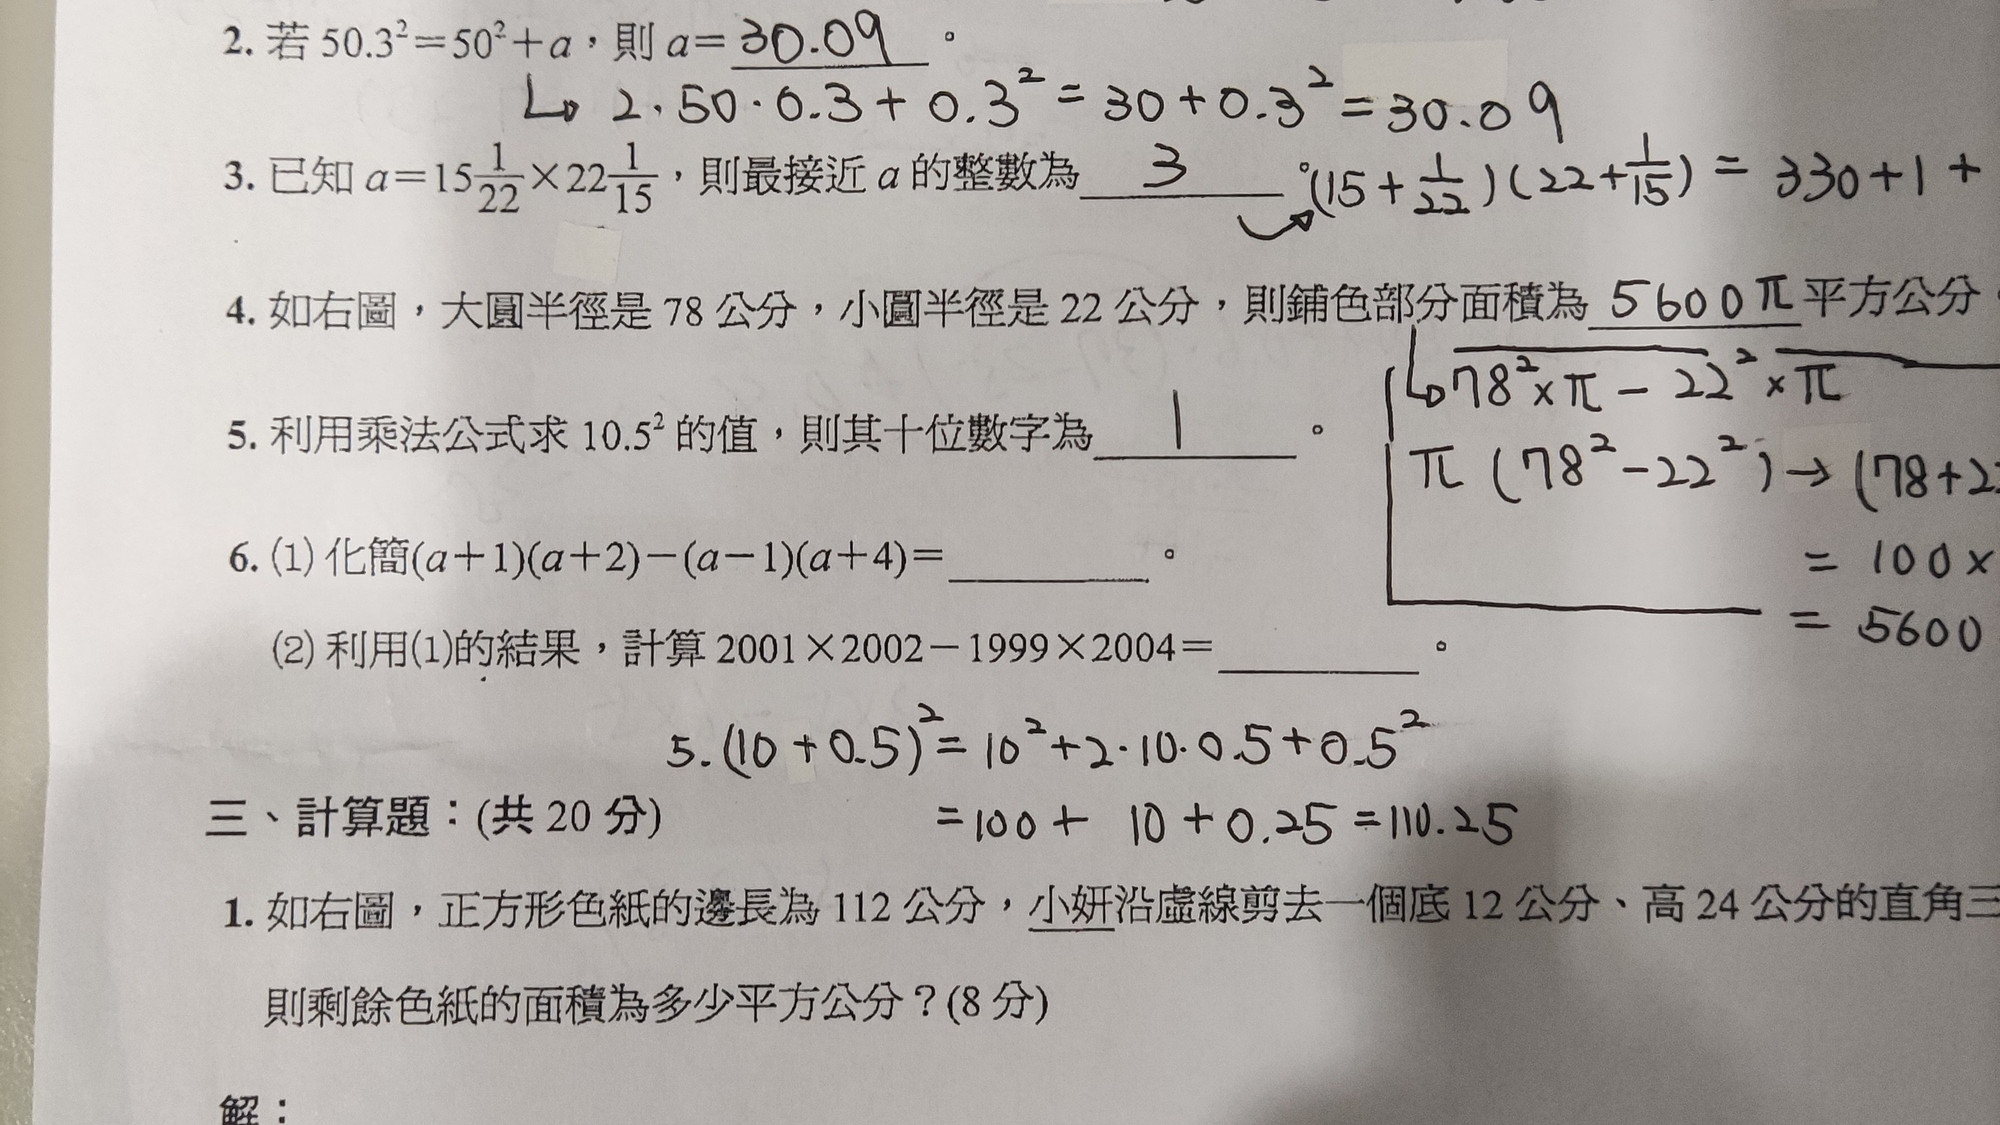 2. 若 50.3²=50²+a，則 a= 30.09 。
↳ 2·50·0.3+0.3²=30+0.3²=30.09
3. 已知 a=15 1/22×22 1/15，則最接近 a 的整數為 3 。(15+1/22)(22+1/15)=330+1+
4. 如右圖，大圓半徑是 78 公分，小圓半徑是 22 公分，則鋪色部分面積為 5600π 平方公分。
↳78²×π-22²×π
5. 利用乘法公式求 10.5² 的值，則其十位數字為 1 。
π(78²-22²)→(78+22
6. (1) 化簡(a+1)(a+2)-(a-1)(a+4)=______。
=100×
(2) 利用(1)的結果，計算 2001×2002-1999×2004=______。
=5600
5. (10+0.5)²=10²+2·10·0.5+0.5²
三、計算題：(共 20 分)
=100+10+0.25=110.25
1. 如右圖，正方形色紙的邊長為 112 公分，小妍沿虛線剪去一個底 12 公分、高 24 公分的直角三
則剩餘色紙的面積為多少平方公分？(8 分)
解：